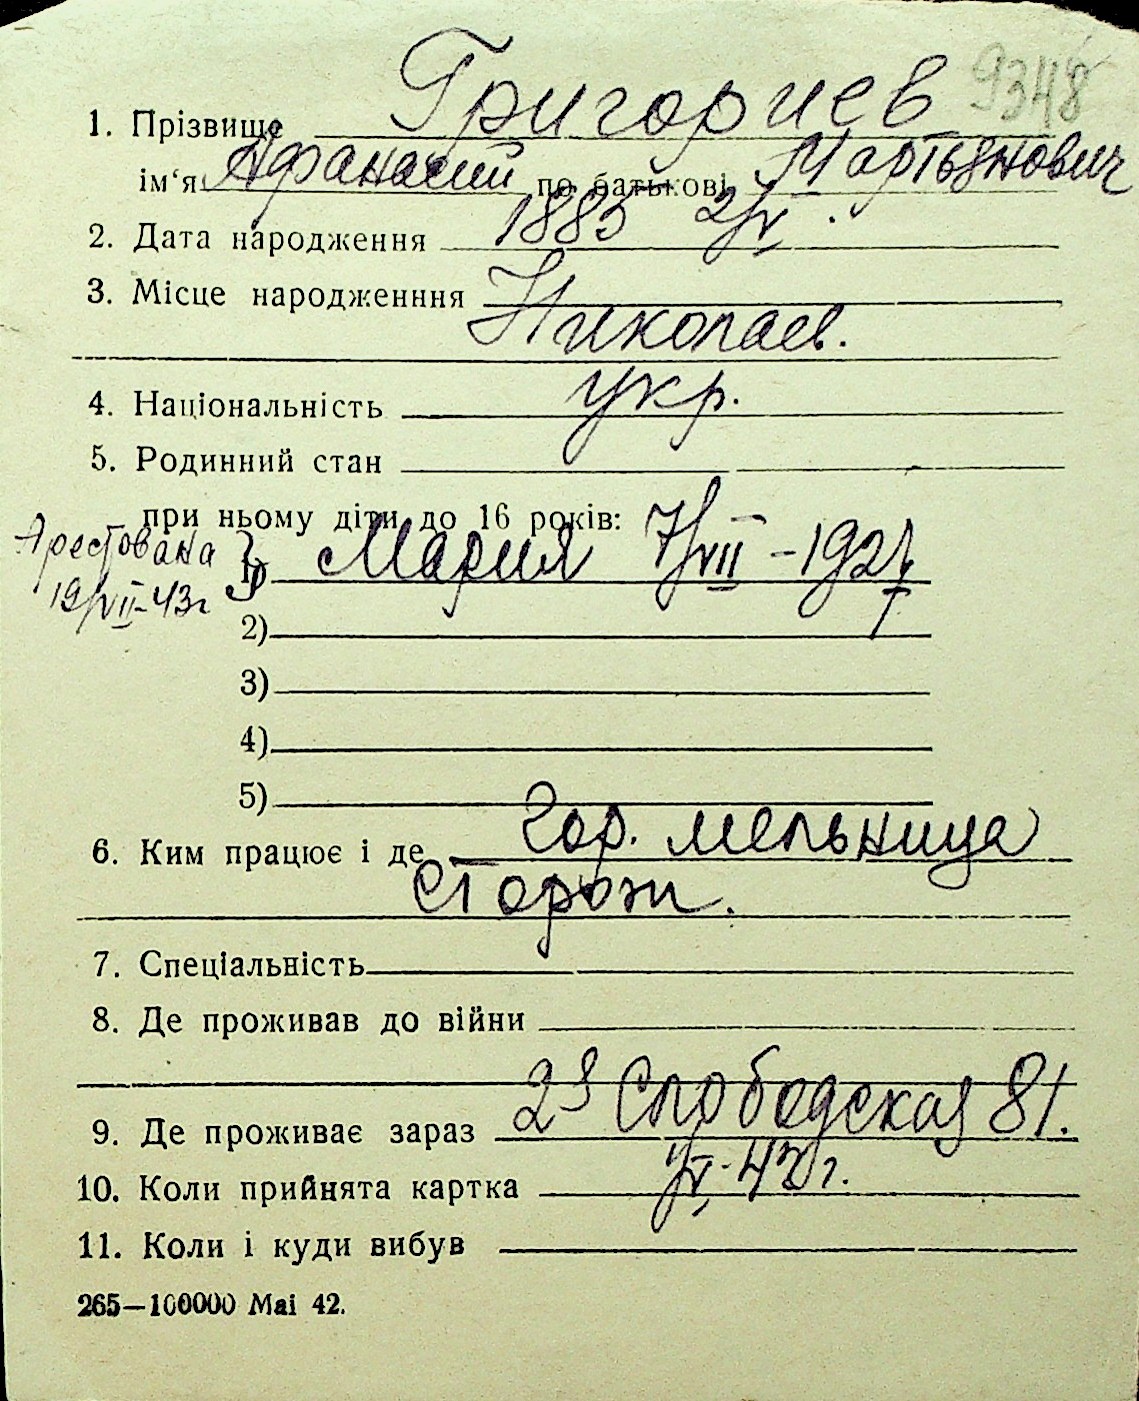 9348
1. Прізвище Григориев
ім‘я Афанасий по батькові Мартьянович
2. Дата народження 1885 2/V.
3. Місце народженння
Николаев.
4. Національність укр.
5. Родинний стан
при ньому діти до 16 років:
Арестована 1) Мария 7/VII - 1927
19/VII-43г
2)
3)
4)
5)
6. Ким працює і де гор. мельница
сторож.
7. Спеціальність
8. Де проживав до війни
9. Де проживає зараз 2я Слободская 81.
10. Коли прийнята картка 43г.
11. Коли і куди вибув
265—100000 Маі 42.